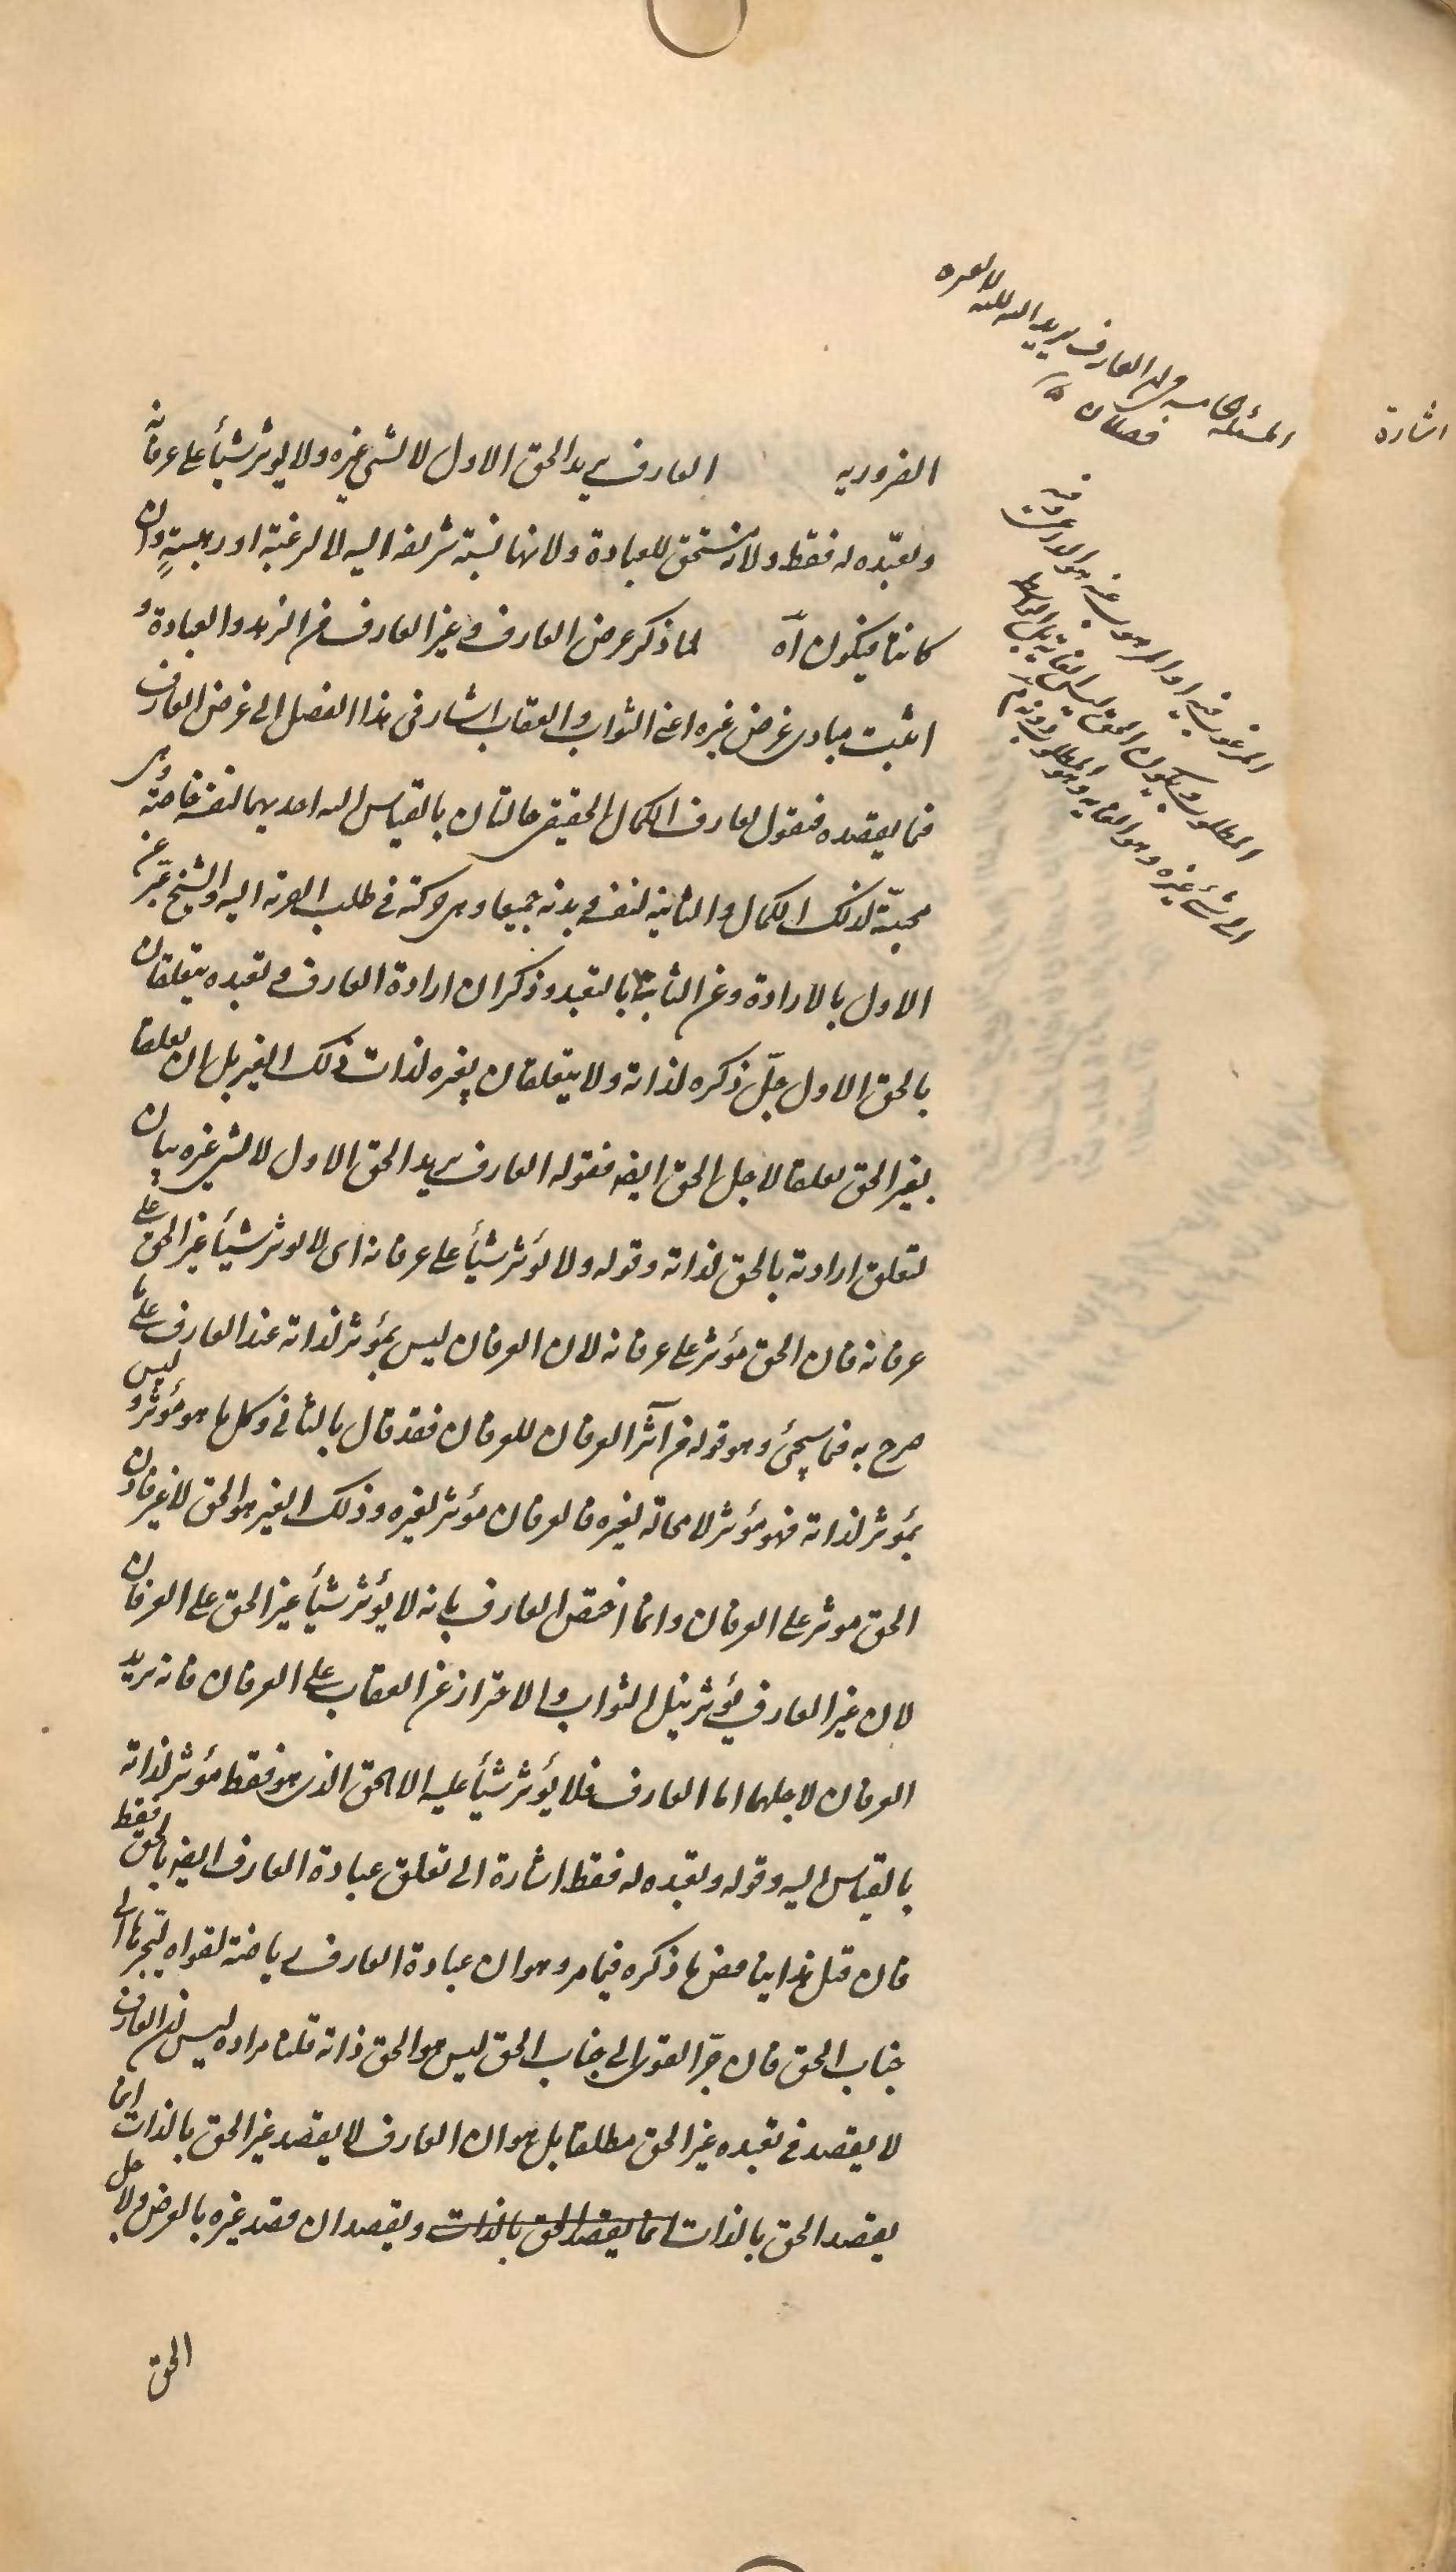 اشارة
المسئلة الخامسة في ان العارف يريد الله لله لا لغيره
فصلان
الضروريه العارف يريد الحق الاول لا لشئ غيره ولا يوثر شيأ على عرفانه
وتعبّده له فقط ولانه مستحق للعبادة ولانها نسبة شريفه اليه لا لرغبة او رهبةٍ وان
كانتا فيكون آه لما ذكر غرض العارف و غير العارف من الزهد والعبادة و
اثبت مبادى غرض غيره اعنى الثواب و العقاب اشار فى هذا الفصل الى غرض العارف
فيما يقصده فنقول لعارف الكمال الحقيقى حالتان بالقياس اليه احديهما لنفسه خاصة وهى
محبتّه لذلك الكمال و الثانية لنفسه و بدنه جميعا و هى حركته فى طلب القربة اليه والشيخ عبّر عن
الاول بالارادة و عن الثانية بالتعبد و ذكر ان ارادة العارف و تعبده يتعلقان
بالحق الاول جلّ ذكره لذاته ولا يتعلقان بغيره لذات ذلك الغير بل ان تعلقا
بغير الحق تعلقا لاجل الحق ايضه فقوله العارف يريد الحق الاول لا لشئ غيره بيان
لتعلق ارادته بالحق لذاته و قوله ولا يؤثر شيأ على عرفانه اى لا يوثر شيأ غير الحق على
عرفانه فان الحق مؤثر على عرفانه لان العرفان ليس بمؤثر لذاته عند العارف على ما
صرح به فيما سيجئ و هو قوله من آثر العرفان للعرفان فقد قال بالثانى و كل ما هو مؤثر و ليس
بمؤثر لذاته فهو مؤثر لا محالة لغيره فالعرفان مؤثر لغيره و ذلك الغير هو الحق لا غير فاذن
الحق موثر على العرفان و انما اختص العارف بانه لا يؤثر شيأ غير الحق على العرفان
لان غير العارف يؤثر نيل الثواب و الاحتراز عن العقاب على العرفان فانه يريد
العرفان لاجلهما اما العارف فلا يؤثر شيأ عليه الا الحق الذى هو فقط مؤثر لذاته
بالقياس اليه و قوله و تعبده له فقط اشارة الى تعلق عبادة العارف ايضه بالحق فقط
فان قيل هذا يناقض ما ذكره فيما مر و هو ان عبادة العارف رياضة لقواه ليجرها الى
جناب الحق فان جرّ القوى الى جناب الحق ليس هو الحق ذاته قلنا مراده ليس ان العارف
لا يقصد فى تعبده غير الحق مطلقا بل هو ان العارف لا يقصد غير الحق بالذات انما
يقصد الحق بالذات انما يقصد الحق بالذات و يقصد ان قصد غيره بالعرض و لاجل
الحق
المرغوب فيه او المرهوب عنه هو الداعى و فيه
المطلوب و يكون الحق ليس الغاية بل الواسطة
الى شئ غيره و هو الغاية و هو المطلوب دونه